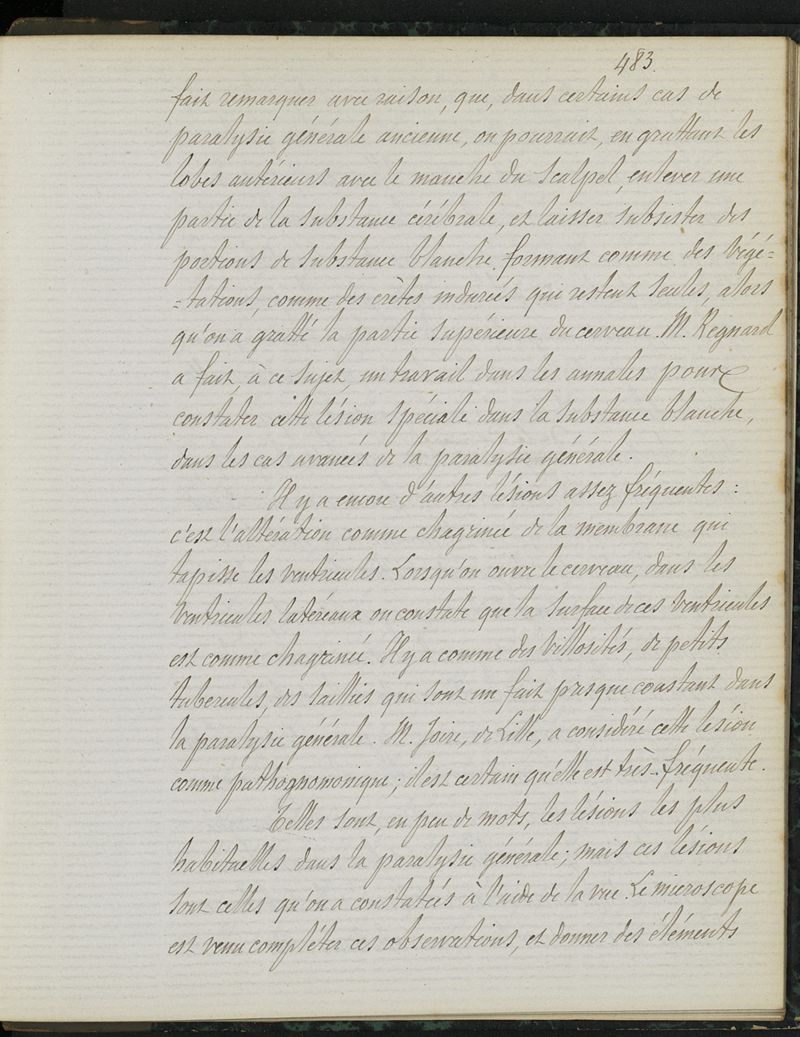 483.
fait remarquer avec raison, que, dans certains cas de
paralysie générale ancienne, on pourrait, en grattant les
lobes antérieurs avec le manche du scalpel, enlever une
partie de la substance cérébrale, et laisser subsister des
portions de substance blanche formant comme des végé=
=tations, comme des crètes indurées qui restent seules, alors
qu'on a gratté la partie supérieure du cerveau. M. Regnard
a fait, à ce sujet, un travail dans les annales pour
constater cette lésion spéciale dans la substance blanche,
dans les cas avancés de la paralysie générale.
Il y a encore d'autres lésions assez fréquentes :
c'est l'altération comme chagrinée de la membrane qui
tapisse les ventricules. Lorsqu'on ouvre le cerveau, dans les
ventricules latéraux on constate que la surface de ces ventricules
est comme chagrinée. Il y a comme des villosités, de petits
tubercules, des saillies qui sont un fait presque constant dans
la paralysie générale. M. Joire, de Lille, a considéré cette lésion
comme pathognomonique ; il est certain qu'elle est très-fréquente.
Telles sont, en peu de mots, les lésions les plus
habituelles dans la paralysie générale ; mais ces lésions
sont celles qu'on a constatées à l'aide de la vue. Le microscope
est venu compléter ces observations, et donner des éléments